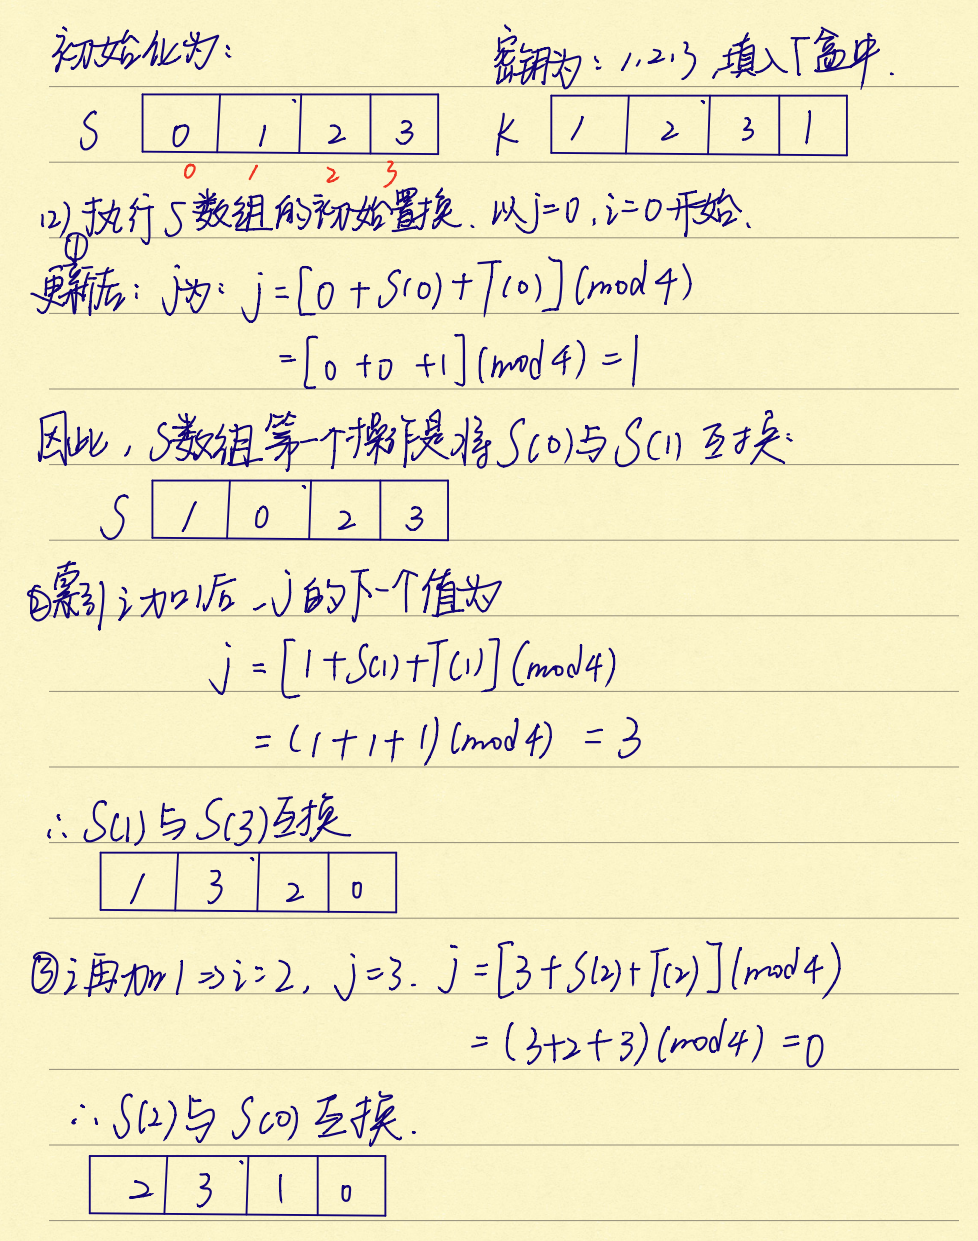 初始化为:
密钥为: 1,2,3 填入T盒中.
S 0 1 2 3
K 1 2 3 1
0 1 2 3
(2) 执行S数组的初始置换. 以j=0,i=0开始.
①更新后: j为: j=[0+S(0)+T(0)](mod4)
=[0+0+1](mod4)=1
因此,S数组第一个操作是将S(0)与S(1)互换:
S 1 0 2 3
②索引i加1后,j的下一个值为
j=[1+S(1)+T(1)](mod4)
=(1+1+1)(mod4) =3
∴S(1)与S(3)互换
1 3 2 0
③i再加1⇒i=2, j=3. j=[3+S(2)+T(2)](mod4)
=(3+2+3)(mod4)=0
∴S(2)与S(0)互换.
2 3 1 0